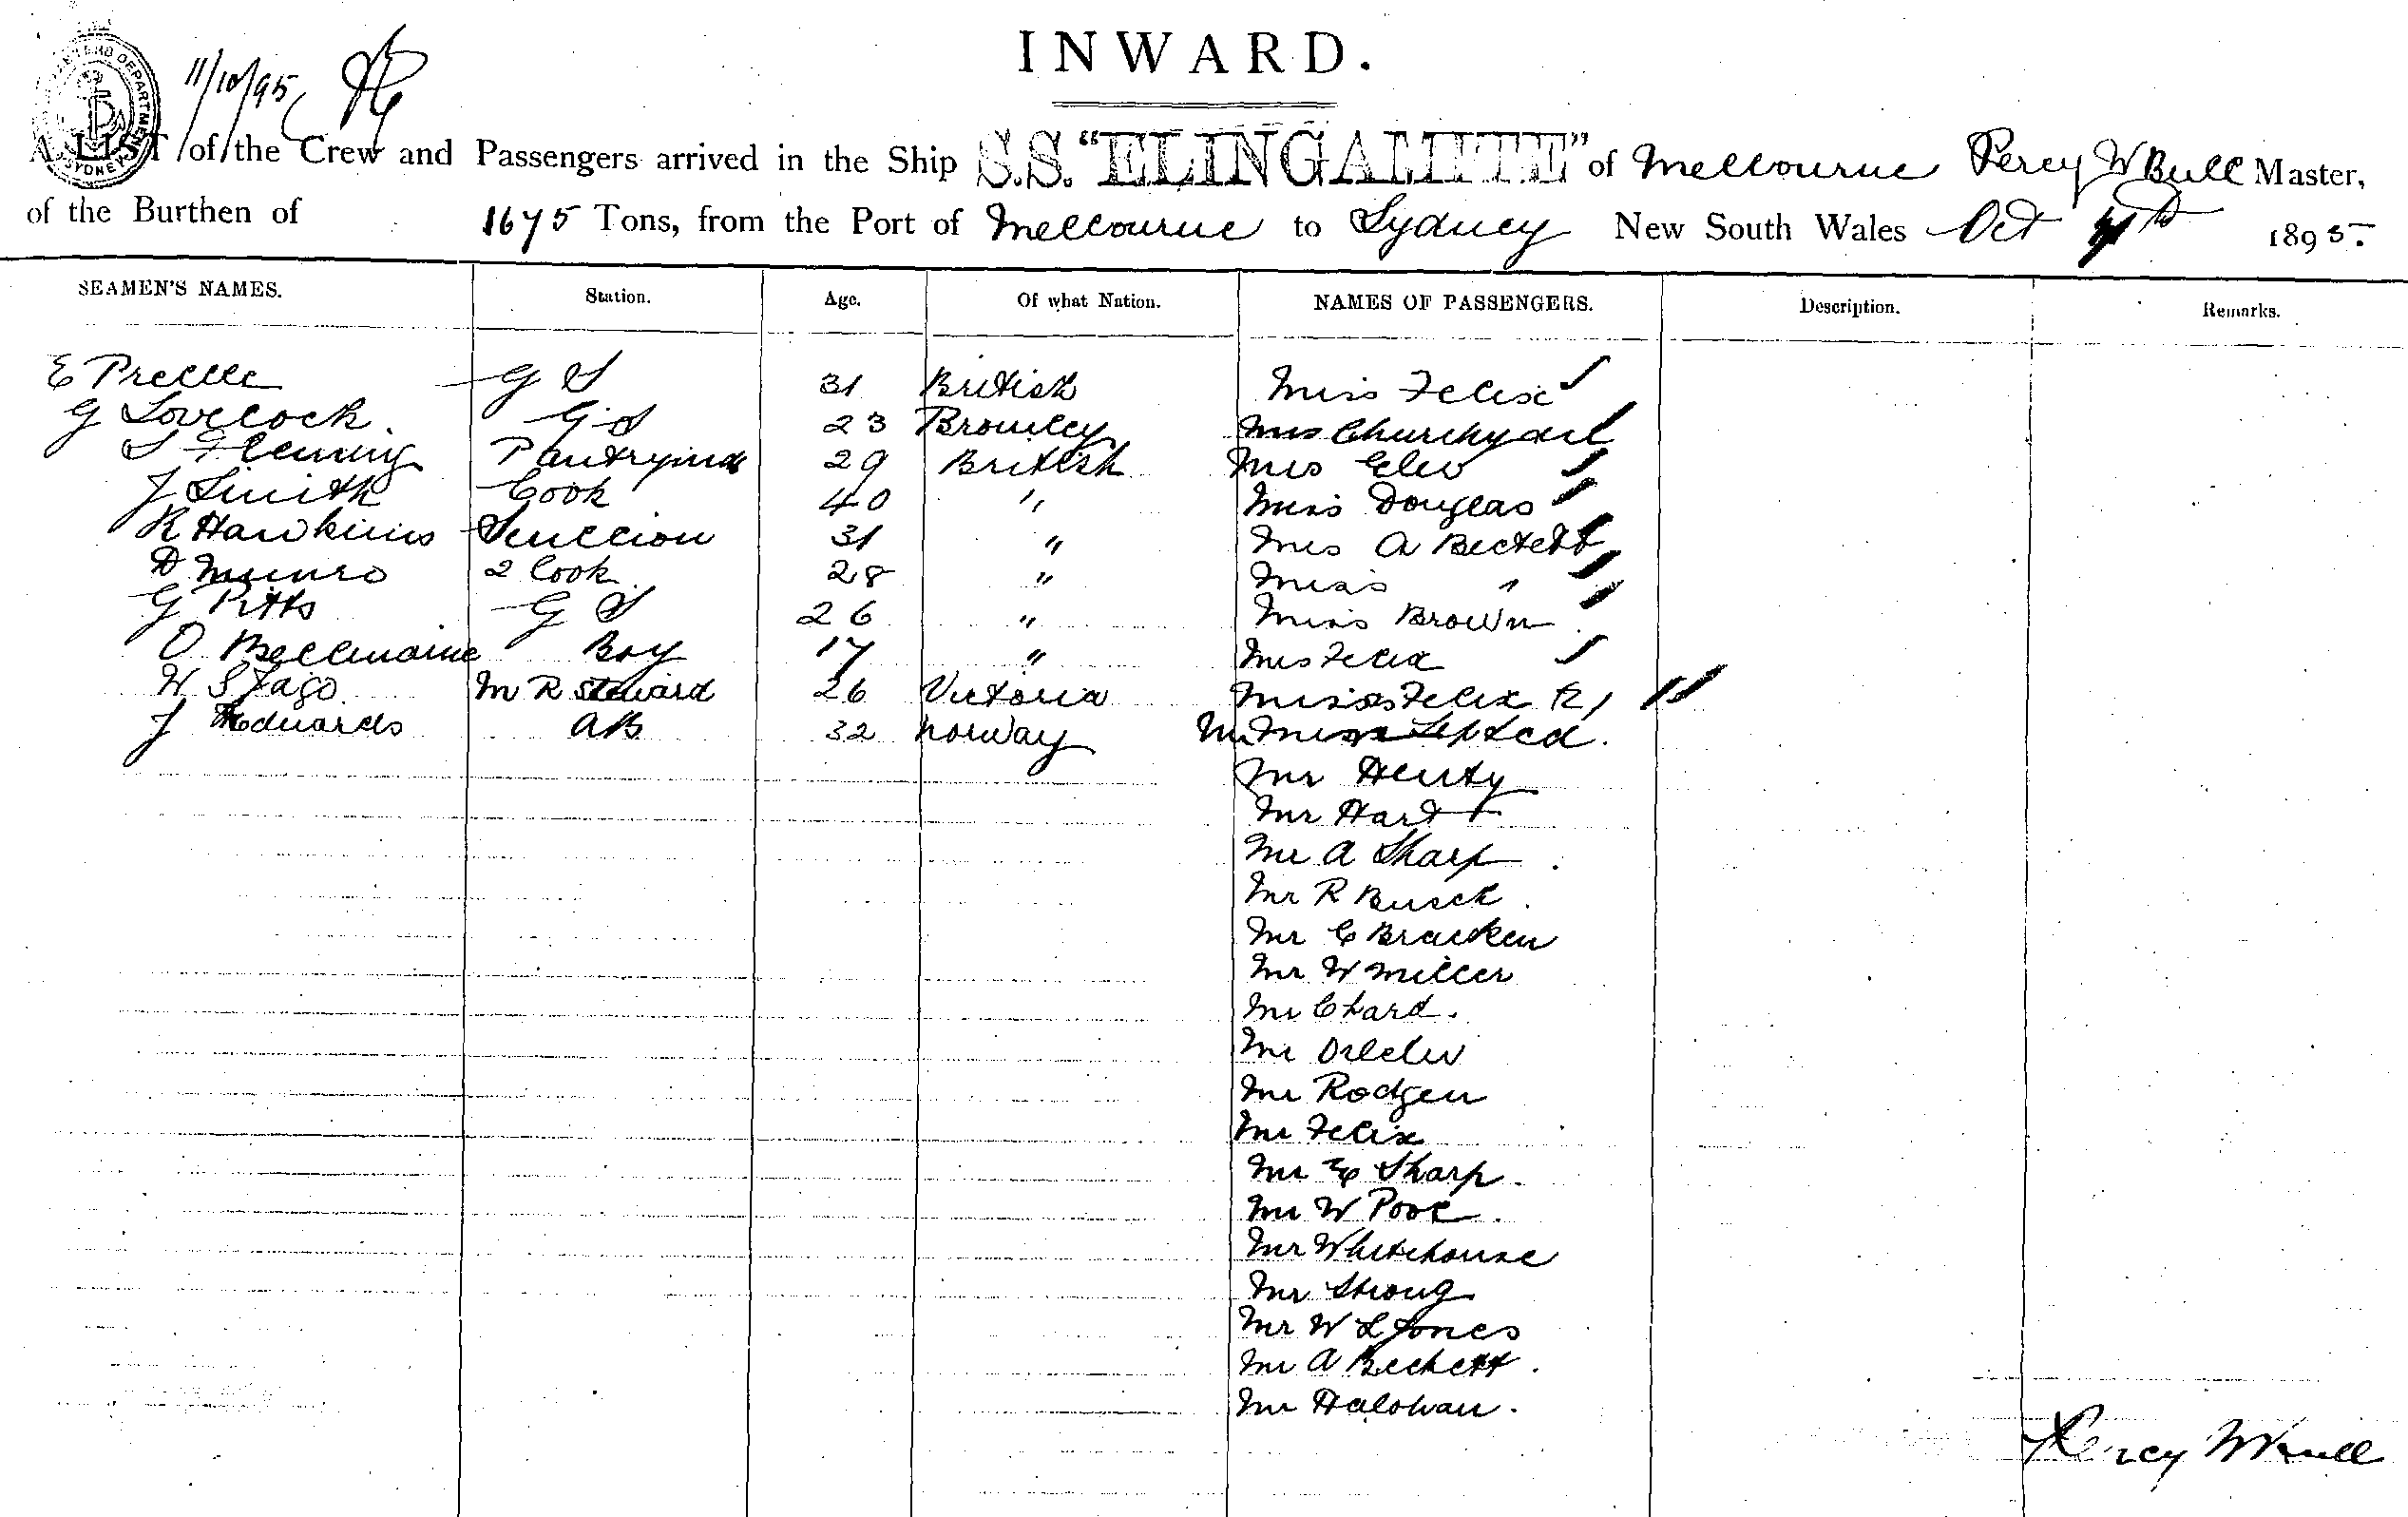 INWARD.
11/10/95
A LIST of the Crew and Passengers arrived in the Ship S.S. "ELINGAMITE" of Melbourne Percy W Bull Master,
of the Burthen of 1675 Tons, from the Port of Melbourne to Sydney New South Wales Oct 1895.
SEAMEN'S NAMES. Station. Age. Of what Nation. NAMES OF PASSENGERS. Description. Remarks.
E G S 31 British Miss Felix
G Lovelock G S 23 Bromley Mrs Churchyard
S Fleming Pantryman 29 British Mrs
J Smith Cook 40 " Miss Douglas
R Hawkins Scullion 31 " Mrs A Beckett
D Munro 2 Cook 28 " Miss "
G Pitts G S 26 " Miss Brown
O Bellmaine Boy 17 " Mrs Felix
W S Jago M R Steward 26 Victoria Misses Felix (2)
J Edwards AB 32 Norway
Mr Henty
Mr Hart
Mr A Sharp
Mr R Busck
Mr C Bracken
Mr W Miller
Mr Chard.
Mr
Mr Rodgen
Mr Felix
Mr E Sharp
Mr W Poole
Mr Whitehouse
Mr Strong
Mr W L Jones
Mr A Beckett
Mr
Percy W Bull